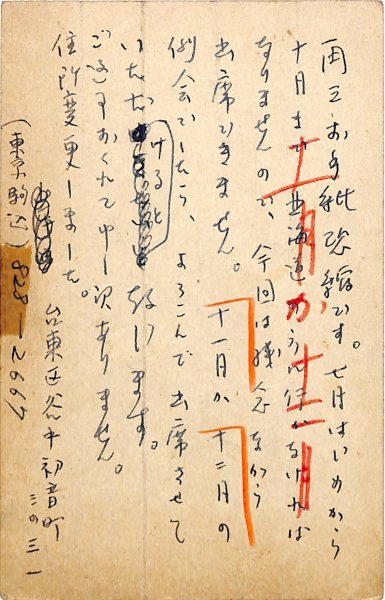 再三お手紙恐縮です。七月はじめから
十月まで北海道なければ
なりませんので、今回は残念ながら
出席できません。十一月か十二月の
例会でしたら、よろこんで出席させて
いただけると ます。
ご返事おくれて申し訳ありません。
住所変更しました。台東区谷中初音町
三の三一
(東京駒込) 828-2667
十一月か十二月